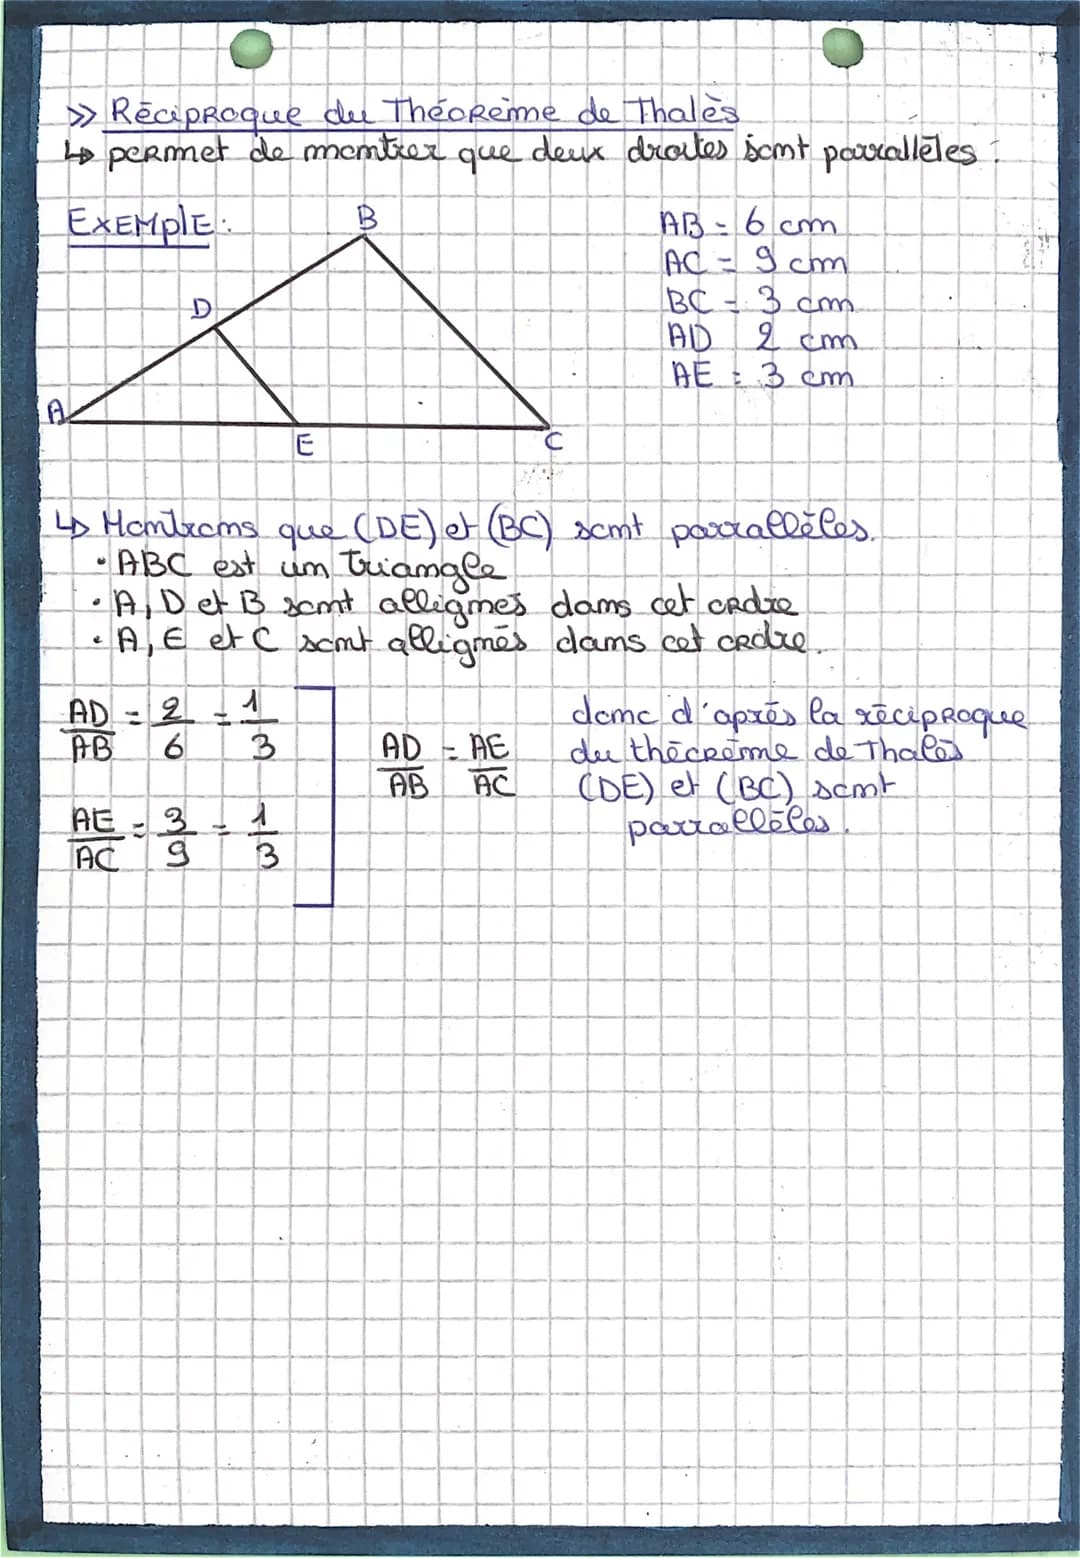 >> Réciproque du Théoreime de Thalès
↳ permet de montrer que deux droites sont parrallèles :
EXEMPLE:
B
D
A
E
C
AB = 6 cm
AC = 9 cm
BC = 3 cm
AD 2 cm
AE = 3 cm
↳ Montrons que (DE) et (BC) sont parrallèles.
• ABC est un triangle
• A, D et B sont allignés dans cet ordre
• A, E et C sont allignés dans cet ordre.
AD/AB = 2/6 = 1/3
AE/AC = 3/9 = 1/3
AD/AB = AE/AC
donc d'après la réciproque
du théorème de Thalès
(DE) et (BC) sont
parrallèles.